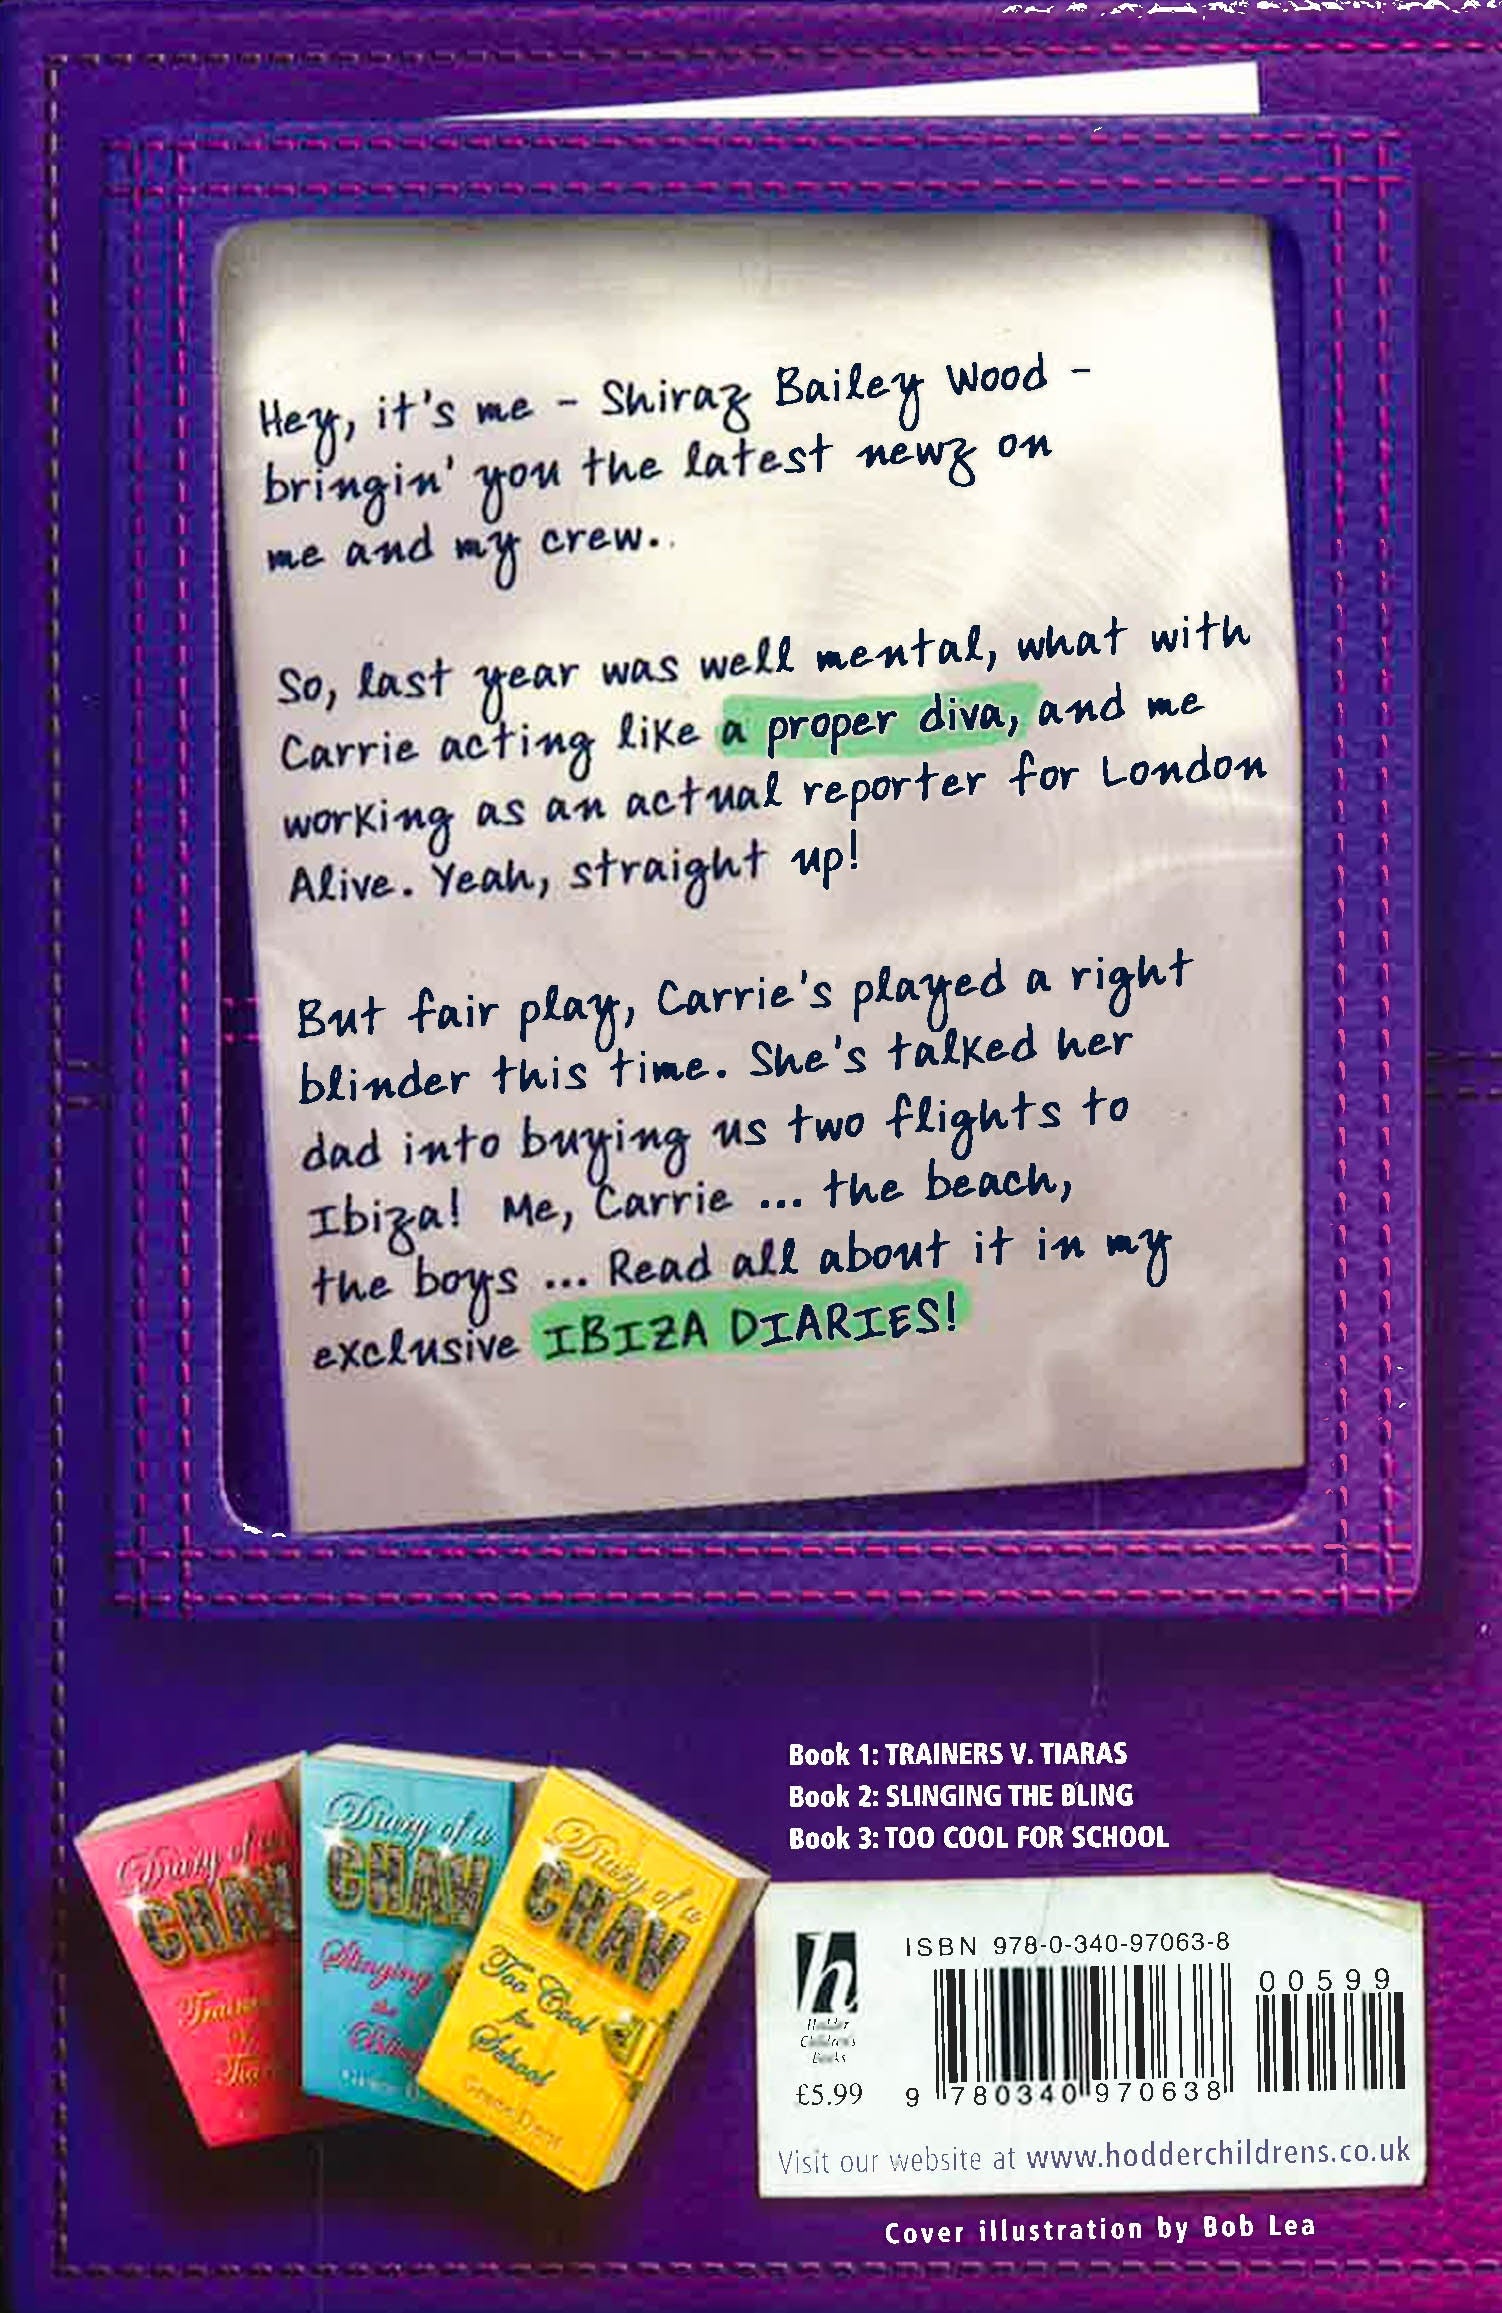 Hey, it's me - Shiraz Bailey Wood -
bringin' you the latest newz on
me and my crew..
So, last year was well mental, what with
Carrie acting like a proper diva, and me
working as an actual reporter for London
Alive. Yeah, straight up!
But fair play, Carrie's played a right
blinder this time. She's talked her
dad into buying us two flights to
Ibiza! Me, Carrie ... the beach,
the boys ... Read all about it in my
exclusive IBIZA DIARIES!
Book 1: TRAINERS V. TIARAS
Book 2: SLINGING THE BLING
Book 3: TOO COOL FOR SCHOOL
Diary of a
CHAV
Diary of a
CHAV
Slinging
the
Bling
Diary of a
CHAV
Too Cool
for
School
Grace Dent
h
Hodder
Children's
Books
£5.99
ISBN 978-0-340-97063-8
00599
9 780340 970638
Visit our website at www.hodderchildrens.co.uk
Cover illustration by Bob Lea